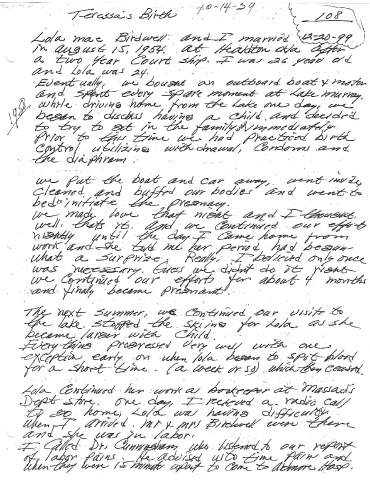 Teressa's Birth
10-14-29
108
12-20-99
Lola mae Birdwell and I married
in August 15, 1954. at Healdton Okla after
a two year Court ship. I was 26 years old
and Lola was 24.
Eventually, we bought an outboard boat & motor
and spent every spare moment at Lake murray.
while driving home from the Lake one day, we
began to discuss having a child and decided
to try to get in the family immediately
Prior to this time we had practiced birth
control utilizing withdrawal, Condoms and
the diaphram.
we put the boat and car away, went inside
cleaned and buffed our bodies and went to
bed initiate the pregnacy.
we made love that night and I thought
well, thats it. And we continued our efforts
nightly until the day I came home from
work and she told me her period had begun
what a surprize, Really. I believed only once
was necessary. Guess we didn't do it right
we continued our efforts for about 4 months
and finaly became pregnant.
The next summer, we continued our visits to
the lake, stopped the skiing for Lola as she
became larger with child.
Everything progressed very well with one
exception early on when lola began to spot blood
for a short time. (a week or so) which then
Lola continued her work as bookkeeper at Massad's
Dept store. one day, I received a radio call
to go home, Lola was having difficulty.
when I arrived. mr & mrs Birdwell were there
and she was in labor.
I called Dr. Cunningham who listened to our report
of labor pains. He advised with time pains and
when they were 15 minute apart to come to Admore Hosp.